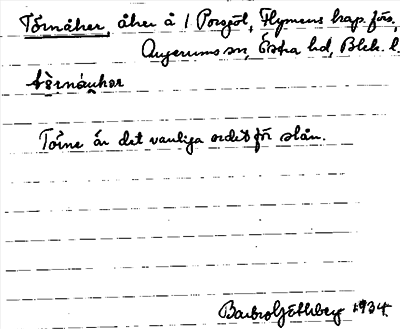 Törnåker, åker å 1 Porgöl, Flymens kap. förs.,
Augerums sn, Östra hd, Blek. l.
Törne är det vanliga ordet för slån.
Barbro Götlberg 1934